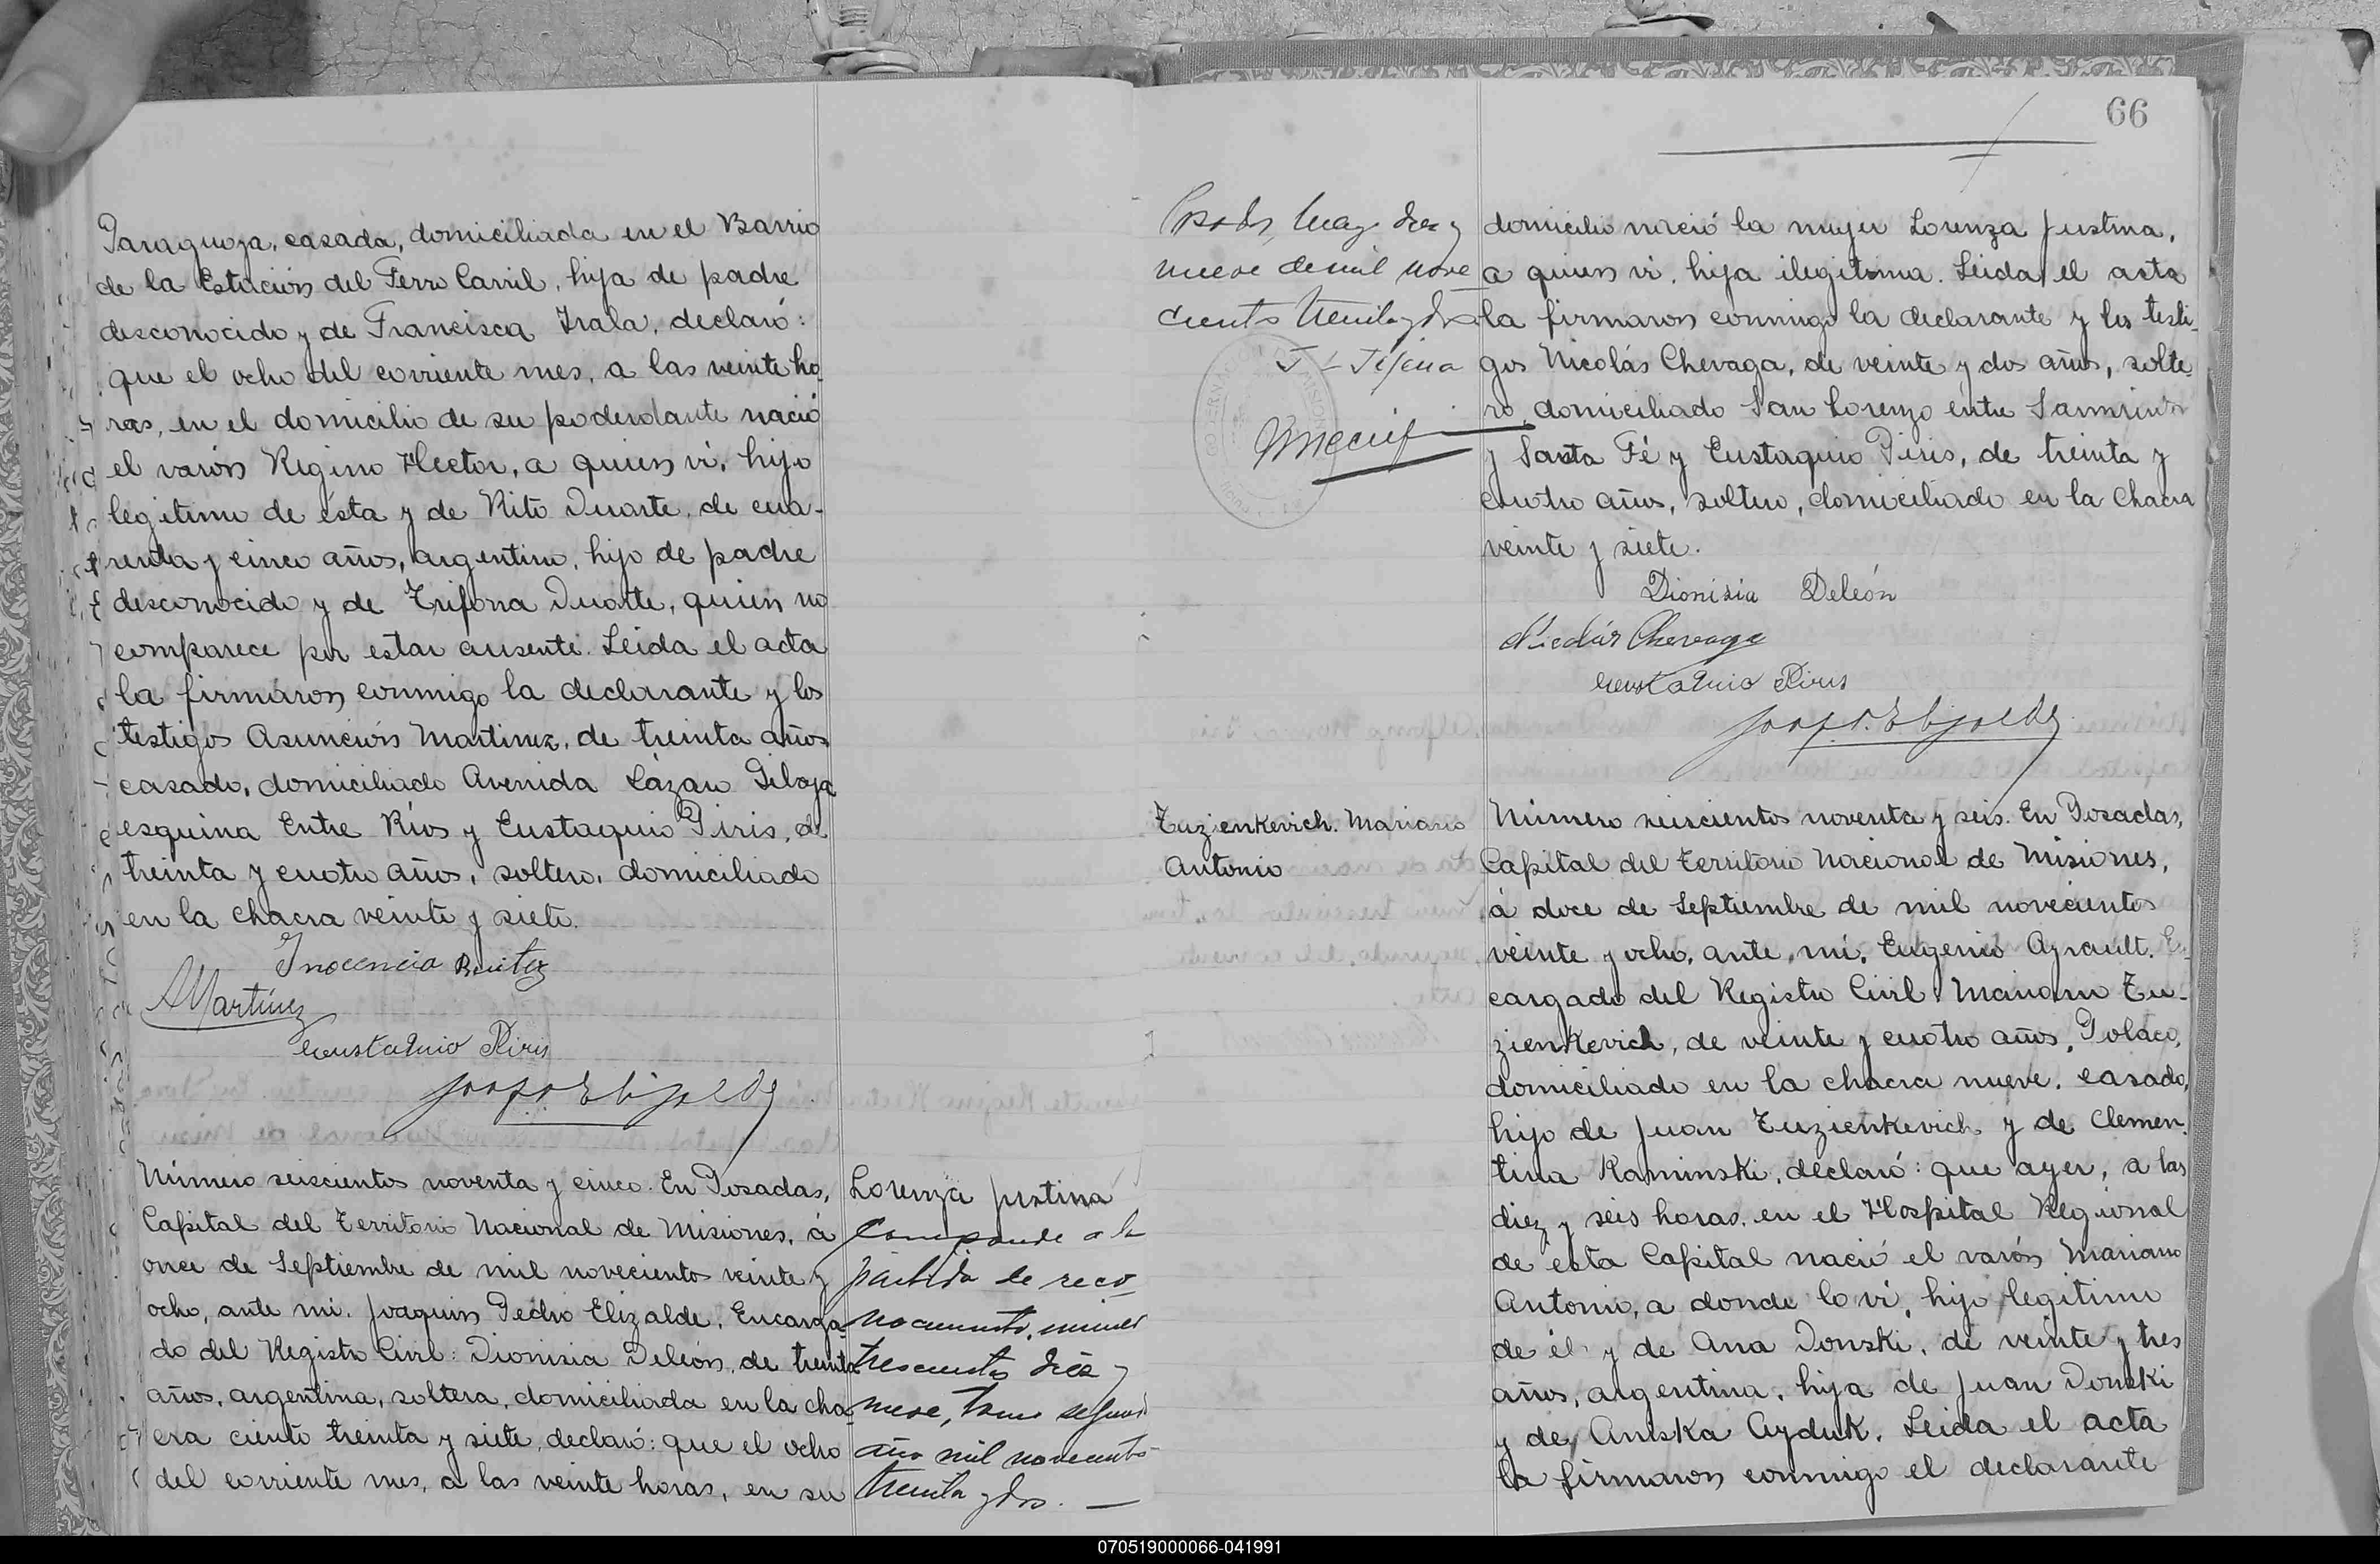 Paraguaya, casada, domiciliada en el Barrio
de la Estación del Ferro Carril, hija de padre
desconocido y de Francisca Irala, declaró:
que el ocho del corriente mes, a las veinte ho-
ras, en el domicilio de su poderdante nació
el varón Regino Hector, a quien vi, hijo
legitimo de ésta y de Rito Duarte, de cua-
renta y cinco años, argentino, hijo de padre
desconocido y de Trifona Duarte, quien no
comparece por estar ausente. Leida el acta
la firmaron conmigo la declarante y los
testigos Asunción Martinez, de treinta años
casado, domiciliado Avenida Lázaro Gibaja
esquina Entre Ríos y Eustaquio Piris, de
treinta y cuatro años, soltero, domiciliado
en la chacra veinte y siete.
Inocencia Benitez
AMartínez
Eustaquio Piris
Número seiscientos noventa y cinco. En Posadas,
Capital del Territorio Nacional de Misiones, á
once de Septiembre de mil novecientos veinte y
ocho, ante mi. Joaquin Pedro Elizalde, Encarga-
do del Registro Civil: Dionisia Deleón, de treinta
años, argentina, soltera, domiciliada en la cha-
cra ciento treinta y siete, declaró: que el ocho
del corriente mes, a las veinte horas, en su
Lorenza Justina
Corresponde a la
partida de reco-
nocimiento, número
trescientos diez y
nueve, tomo segundo
año mil novecientos
treinta y dos. —
66
Posadas, Mayo diez y
nueve de mil nove
cientos treinta y dos
J. L. Tejena
domicilio nació la mujer Lorenza Justina,
a quien vi, hija ilegitima. Leida el acta
la firmaron conmigo la declarante y los testi-
gos Nicolás Chevaga, de veinte y dos años, solte-
ro, domiciliado San Lorenzo entre Sarmiento
y Santa Fé y Eustaquio Piris, de treinta y
cuatro años, soltero, domiciliado en la chacra
veinte y siete.
Dionisia Deleón
Nicolás Chevaga
Eustaquio Piris
Tuzienkevich. Mariano
Antonio
Número seiscientos noventa y seis. En Posadas,
Capital del Territorio Nacional de Misiones,
á doce de Septiembre de mil novecientos
veinte y ocho, ante mi, Eugenio Ayrault. En-
cargado del Registro Civil: Mariano Tu-
zienkevich, de veinte y cuatro años, Polaco,
domiciliado en la chacra nueve, casado,
hijo de Juan Tuzienkevich y de Clemen-
tina Kaminski, declaró: que ayer, a las
diez y seis horas, en el Hospital Regional
de esta Capital nació el varón Mariano
Antonio, a donde lo vi, hijo legitimo
de él y de Ana Donski, de veinte y tres
años, argentina, hija de Juan Donski
y de Anska Ayduk. Leida el acta
la firmaron conmigo el declarante
070519000066-041991